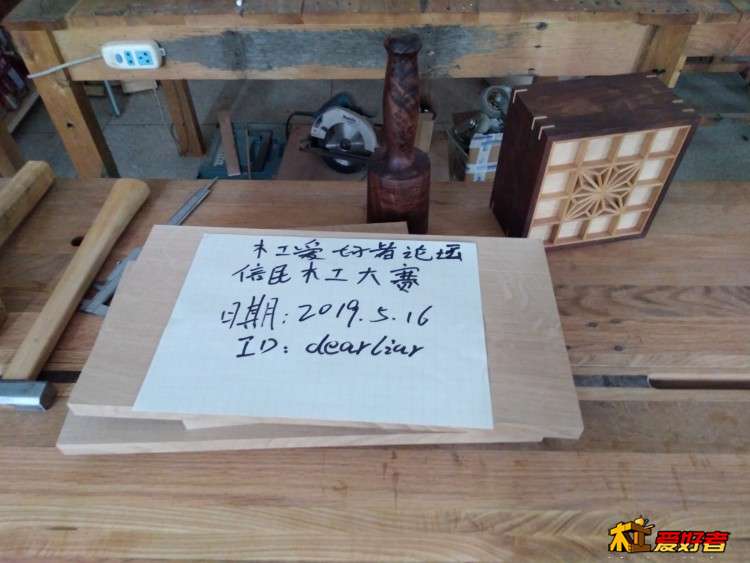 木工爱好者论坛
信民木工大赛
日期:2019.5.16
ID:dearliar
木工爱好者